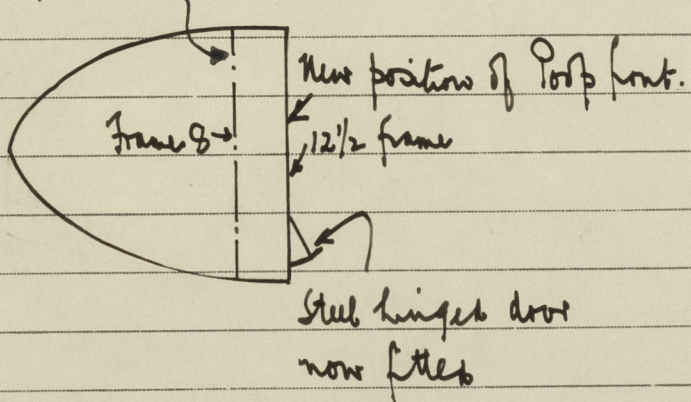 New position of Poop front.
Frame 8
12½ frame
Steel hinged door
now fitted